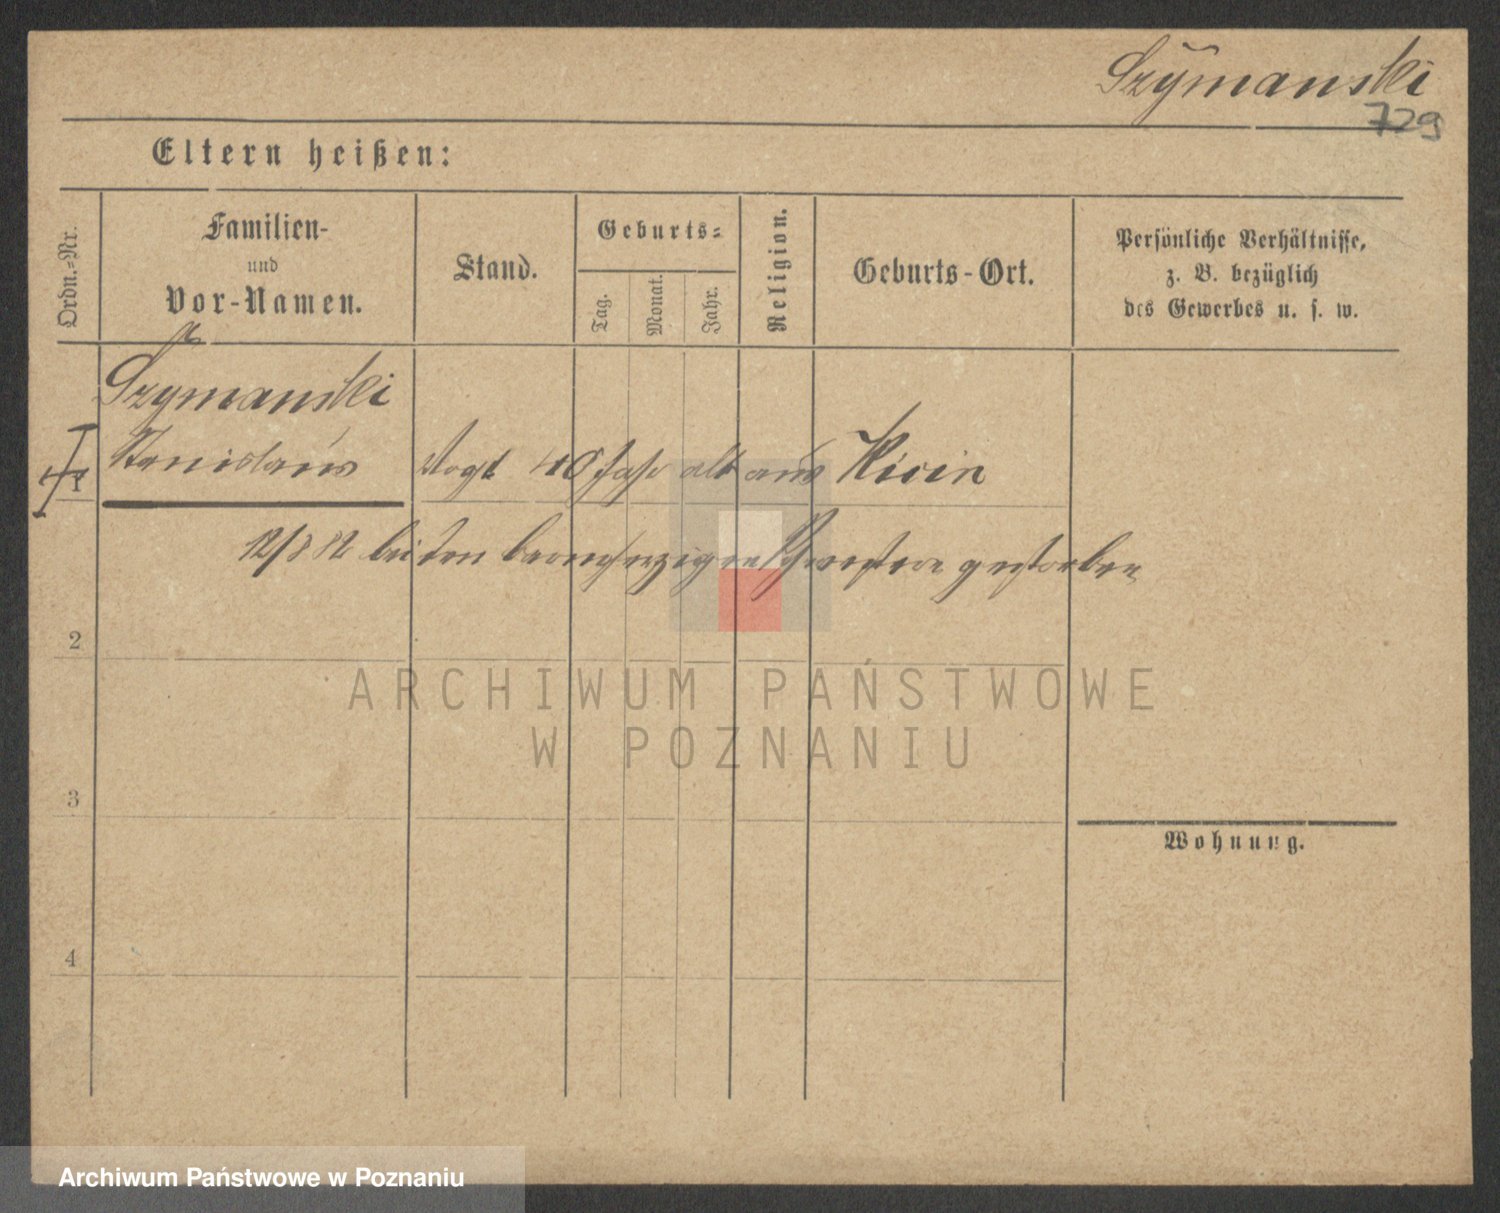 Szymanski
729
Eltern heißen:
Ordn.-Nr.
Familien-
und
Vor-Namen.
Stand.
Geburts-
Tag.
Monat.
Jahr.
Religion.
Geburts-Ort.
Persönliche Verhältnisse,
z. B. bezüglich
des Gewerbes u. s. w.
Szymanski
1
Stanislaus Vogt 40 Jahr alt aus Kicin
12/8 82 bei den barmherzigen Schwestern gestorben
2
ARCHIWUM PAŃSTWOWE
W POZNANIU
3
Wohnung.
4
Archiwum Państwowe w Poznaniu